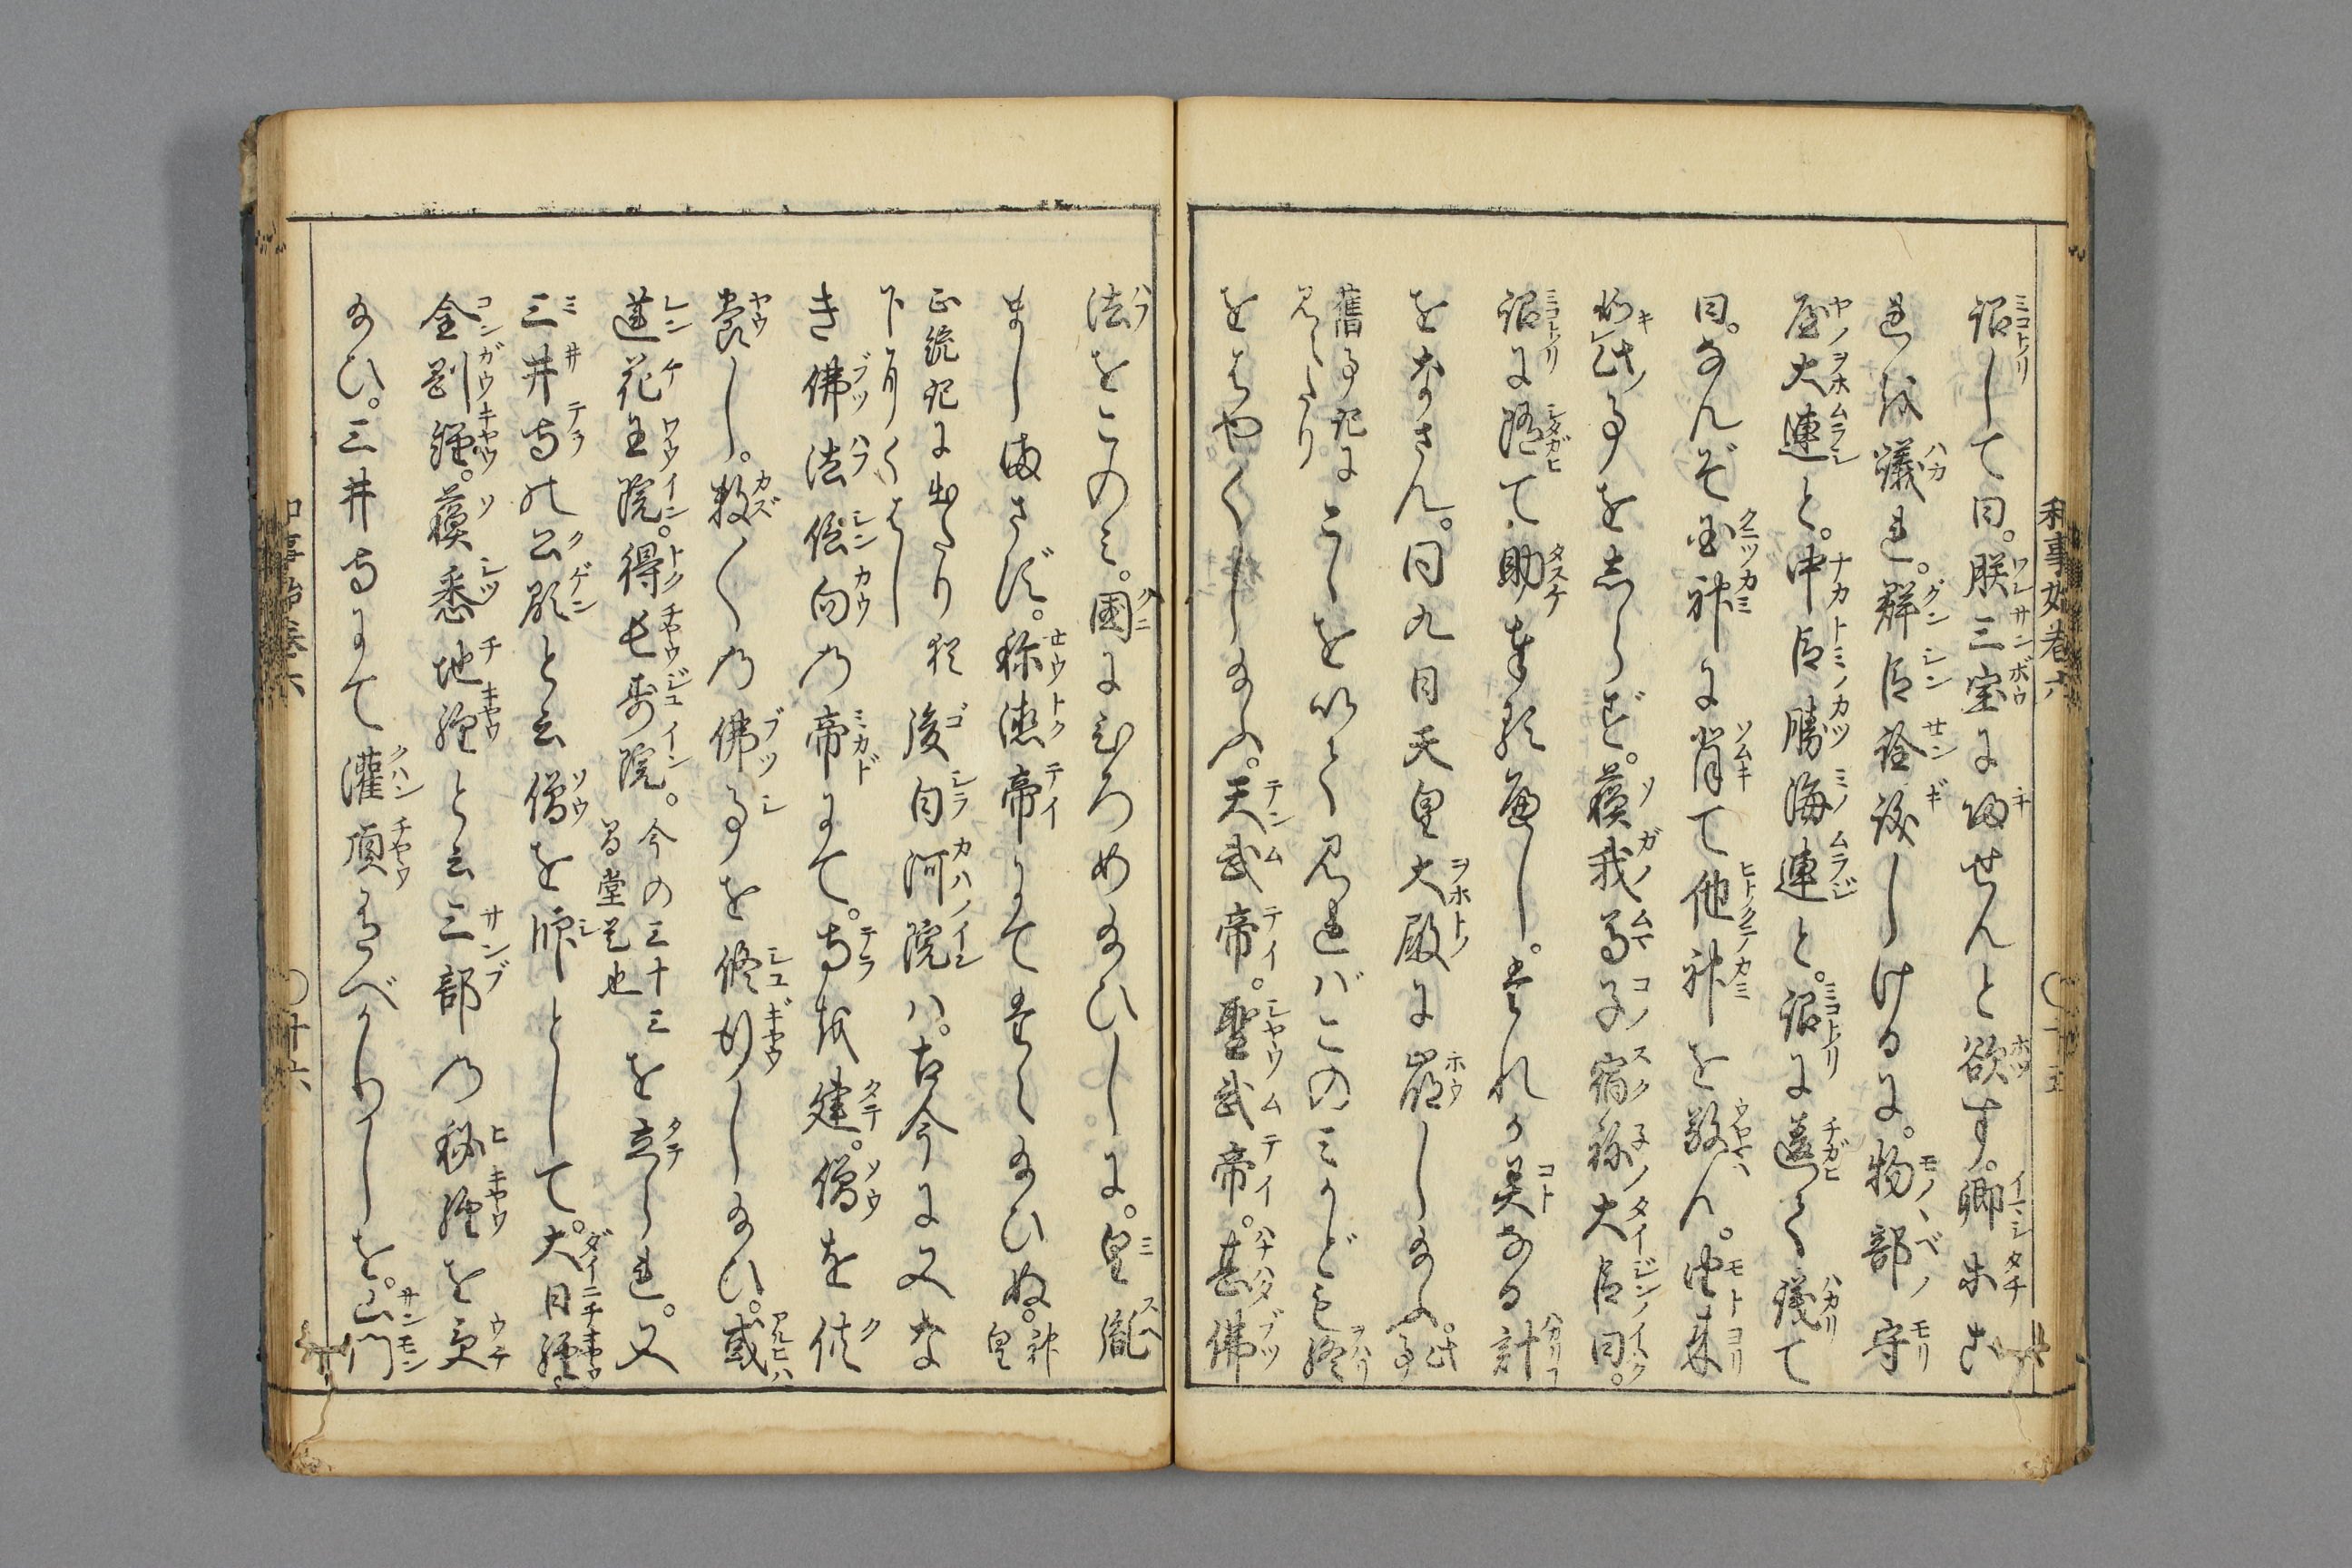 和事始巻六
〇十五
詔して曰。朕三宝に帰せんと欲す。卿等こ
れを議れ。群臣詮議しけるに。物部守
屋大連と。中臣勝海連と。詔に違て議て
曰。なんぞ国神に背て他神を敬ん。由来
如此事をしらず。蘇我馬子宿祢大臣曰。
詔に随て助奉るべし。たれか異なる計
をなさん。同九日天皇大殿に崩し給ふ。此事
舊事記に見えたり こゝを以て見ればこのみかども終
をはやくし給ふ。天武帝。聖武帝。甚佛
法をこのみ。國にひろめ給ひしに。皇胤
まし満さず。称徳帝にて
たえ給ひぬ。神皇
正統記に出たり猶
下にくはし 後白河院ハ。古今に又な
き佛法信向の帝にて。寺を建。僧を供
養し。数〱の佛事を修行し給ひ。或ハ
蓮花王院。得長寿院。今の三十三
間堂是也 を立られ。又
三井寺の公顕と云僧を師として。大日経
金剛経。蘇悉地経と云三部の秘経を受
給ひ。三井寺にて灌頂有べかりしを。山門
和事始巻六
〇十六